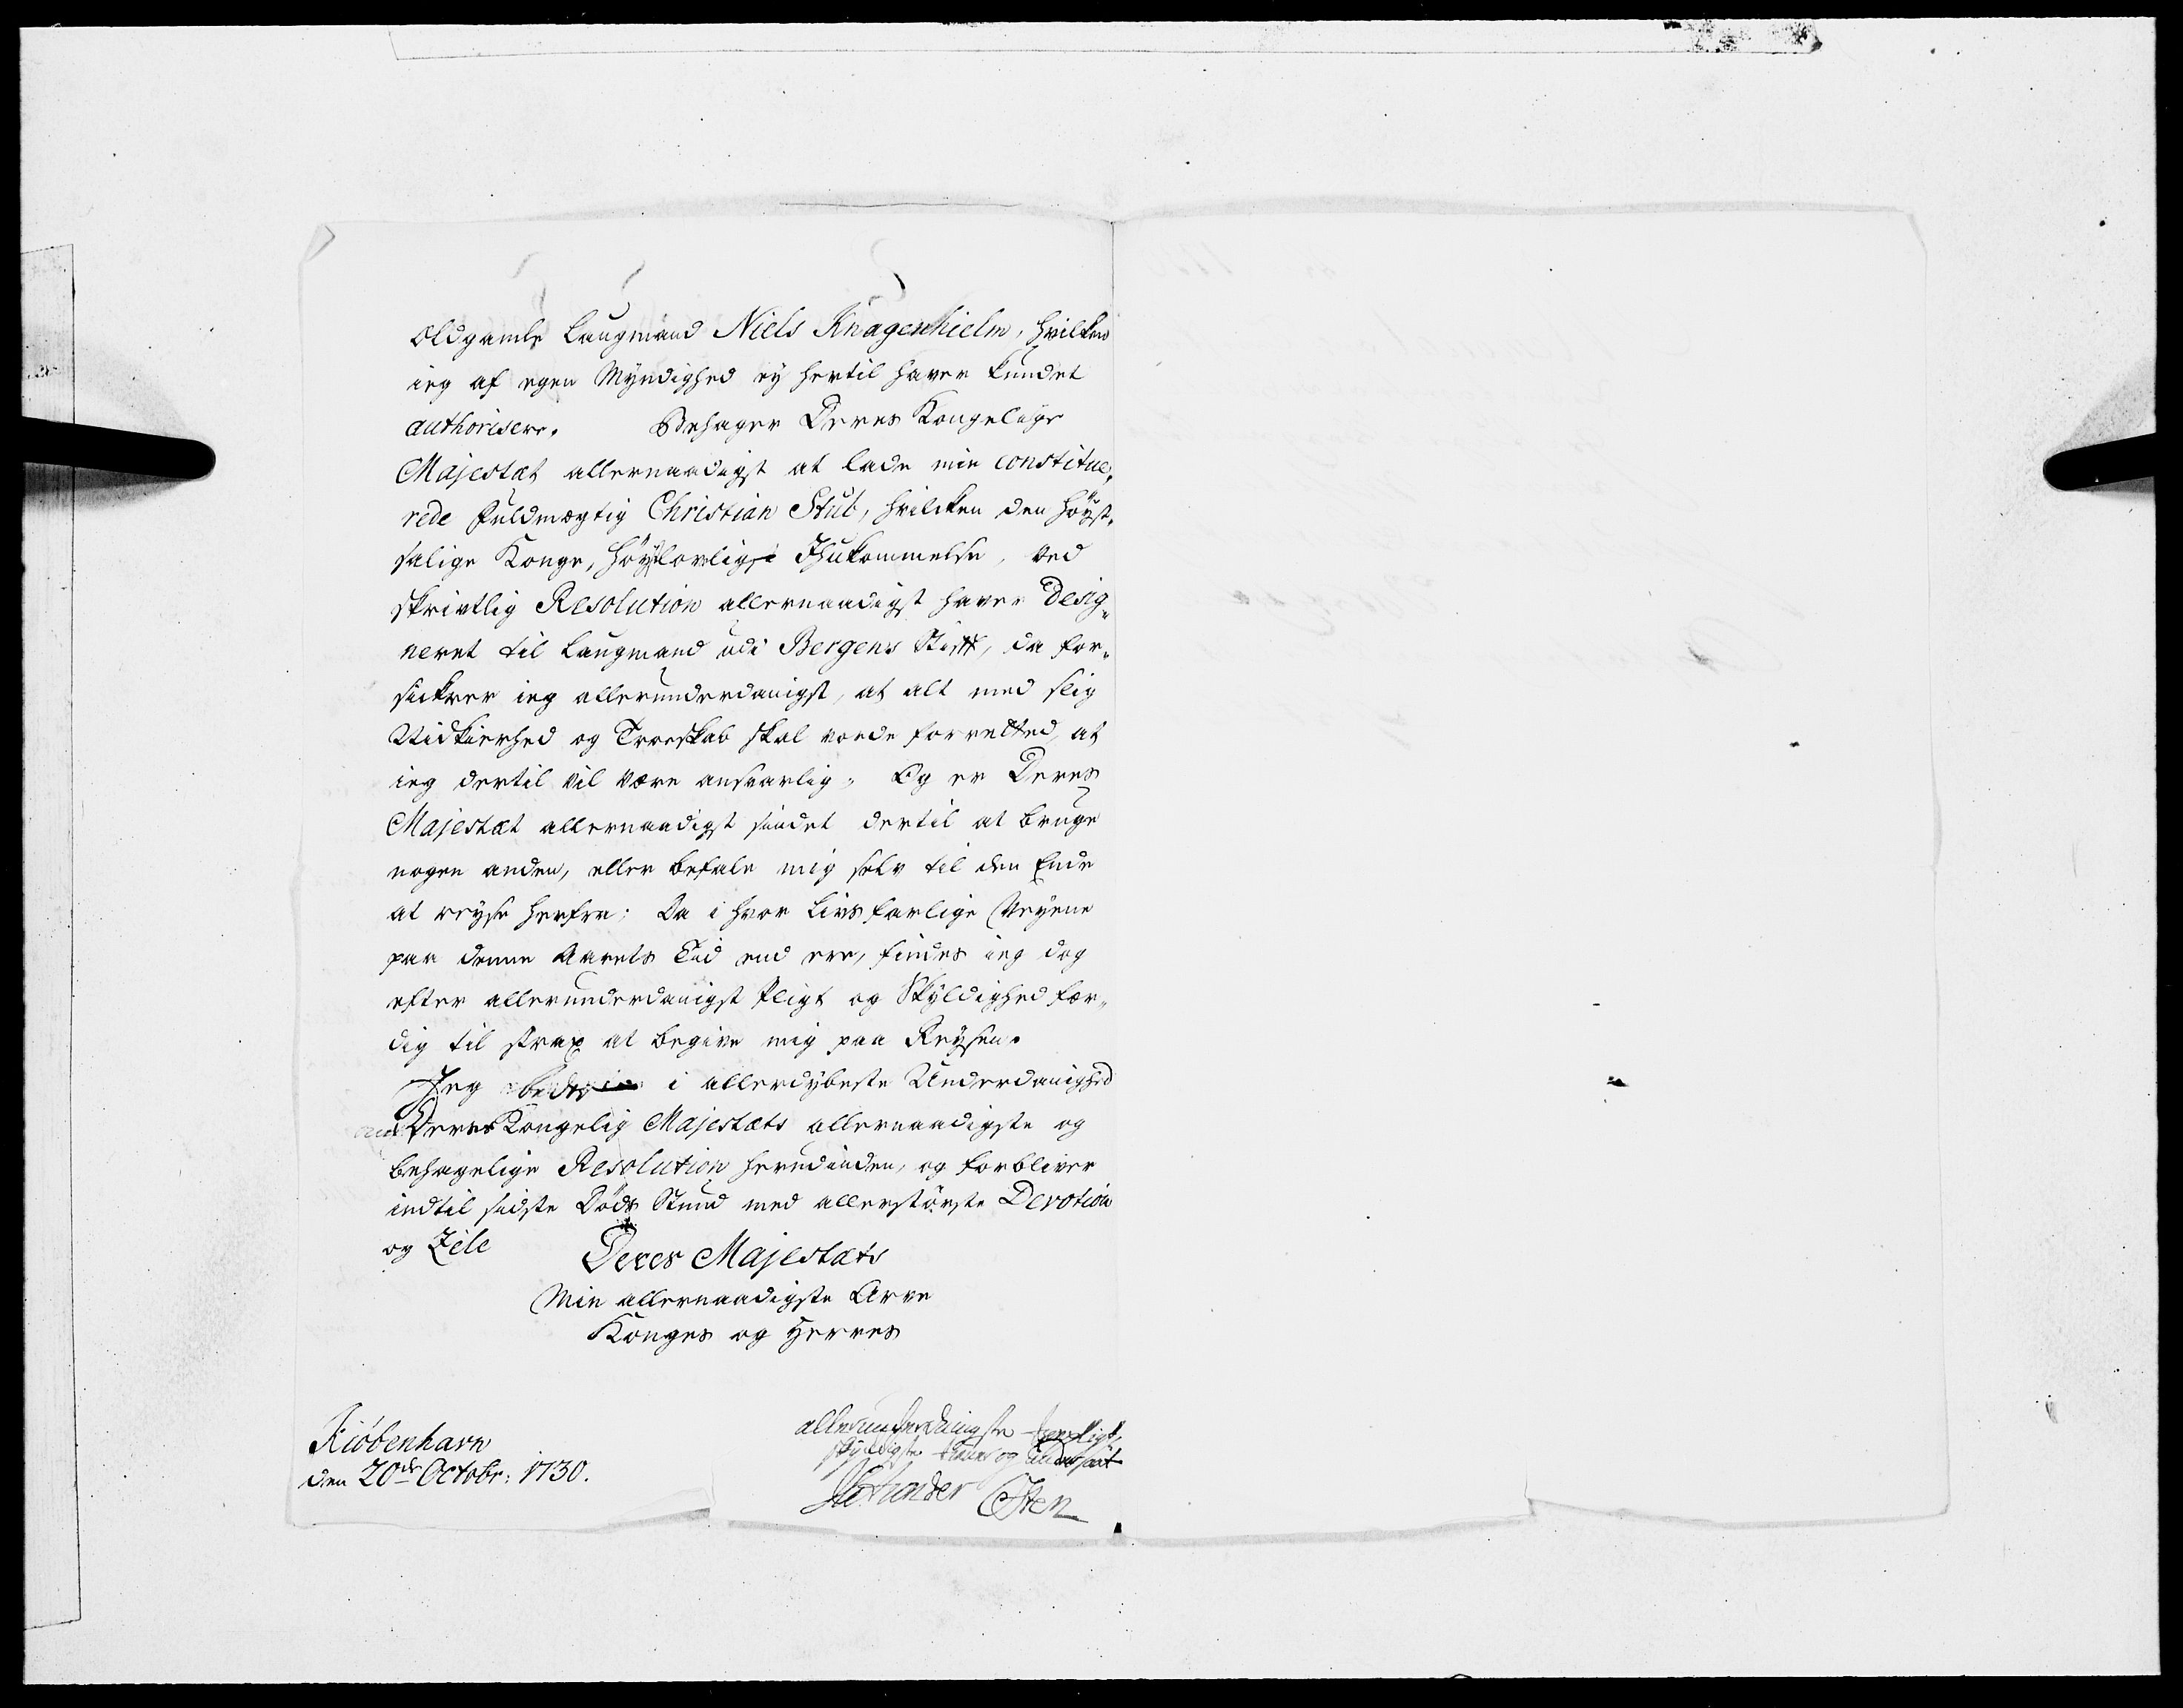 Oldgamle Laugmand Niels Knagenhielm, hvilken
ieg af egen Myndighed ey hertil haver kundet
authorisere. Behager Deres Kongelige
Majestæt allernaadigst at lade min constitue„
rede Fuldmegtig Christian Stub, hvilcken den høyst„
salige Konge, høylovlig Ihukommelse, ved
skrivtlig Resolution allernaadigst haver desig„
neret til Laugmand udi Bergens Stift, da for„
sickrer ieg allerunderdanigst, at alt med slig
Nidkierhed og Troeskab skal vorde forretted, at
ieg dertil vil være ansvarlig. Og er Deres
Majestæt allernaadigst sindet dertil at bruge
nogen anden, eller befale mig selv til den Ende
at reyse herfra; Da i hvor Livsfarlige Veyene
paa denne Aarets Tid end ere, findes ieg dog
efter allerunderdanigst Pligt og Skyldighed fær„
dig til strax at begive mig paa Reysen.
Jeg beder i allerdybeste Underdanighed
om Deres Kongelig Majestæts allernaadigste og
behagelige Resolution herudinden, og forbliver
indtil sidste Døds Stund med allerstørste Devotion
og Zele
Deres Majestæts
Min allernaadigste Arve
Konges og Herres
Kiøbenhavn
den 20de Octobr: 1730.
allerunderdanigste
skyldigste tiener og undersaat